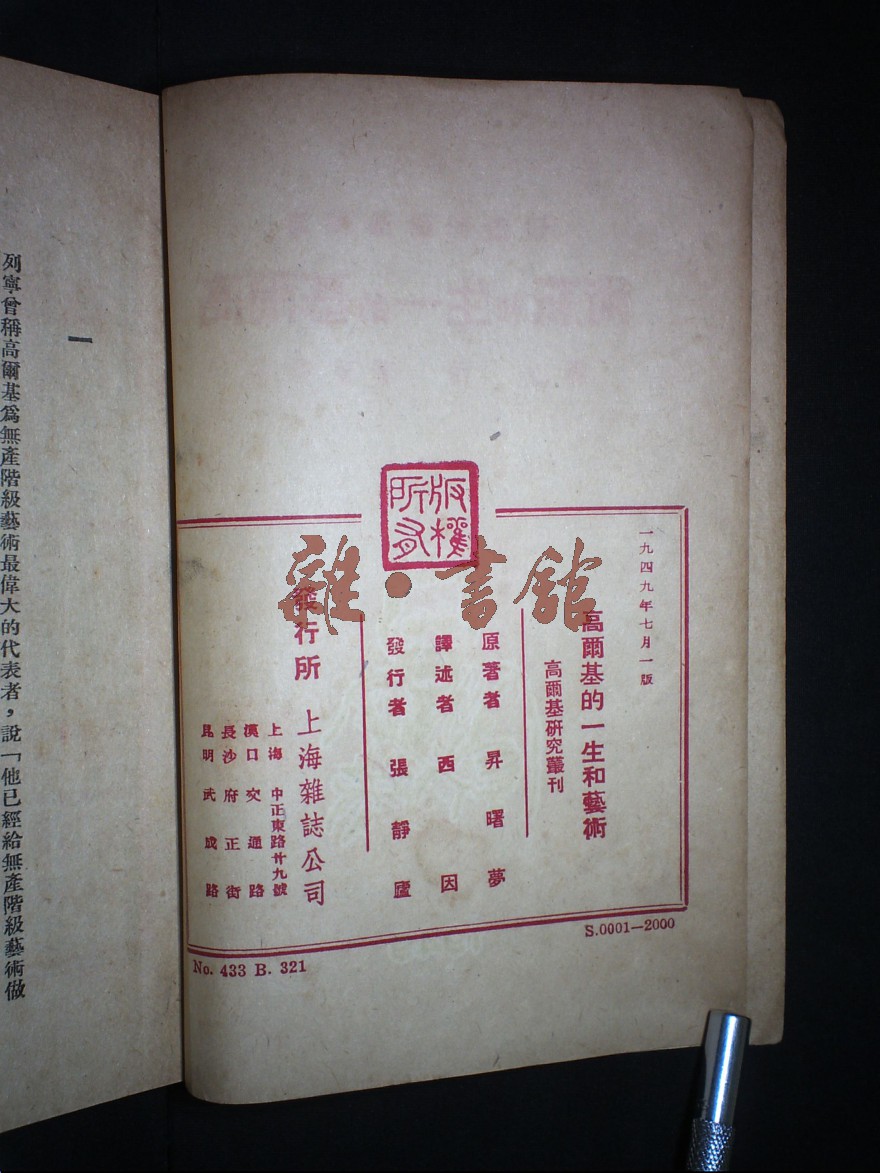 一九四九年七月一版
高爾基的一生和藝術
高爾基研究叢刊
原著者 昇曙夢
譯述者 西因
發行者 張靜廬
發行所 上海雜誌公司
上海 中正東路卄九號
漢口 交通路
長沙 府正街
昆明 武成路
版權所有
S.0001—2000
No. 433 B. 321
雜·書館
一
列寧曾稱高爾基爲無產階級藝術最偉大的代表者，說「他已經給無產階級藝術做